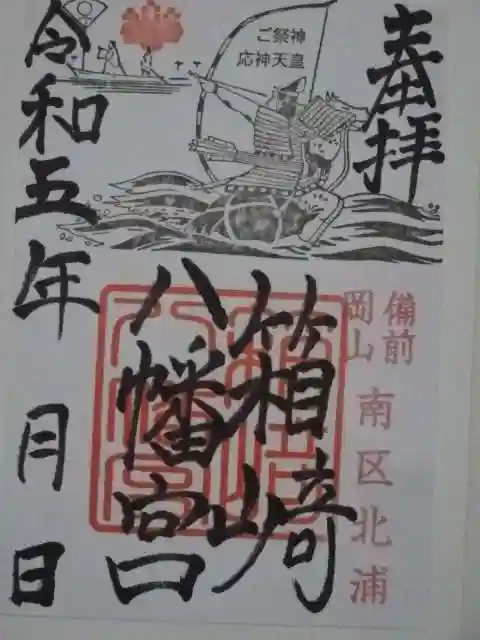 奉拝
ご祭神
応神天皇
備前
岡山
南区北浦
箱崎
八幡宮
令和五年 月 日